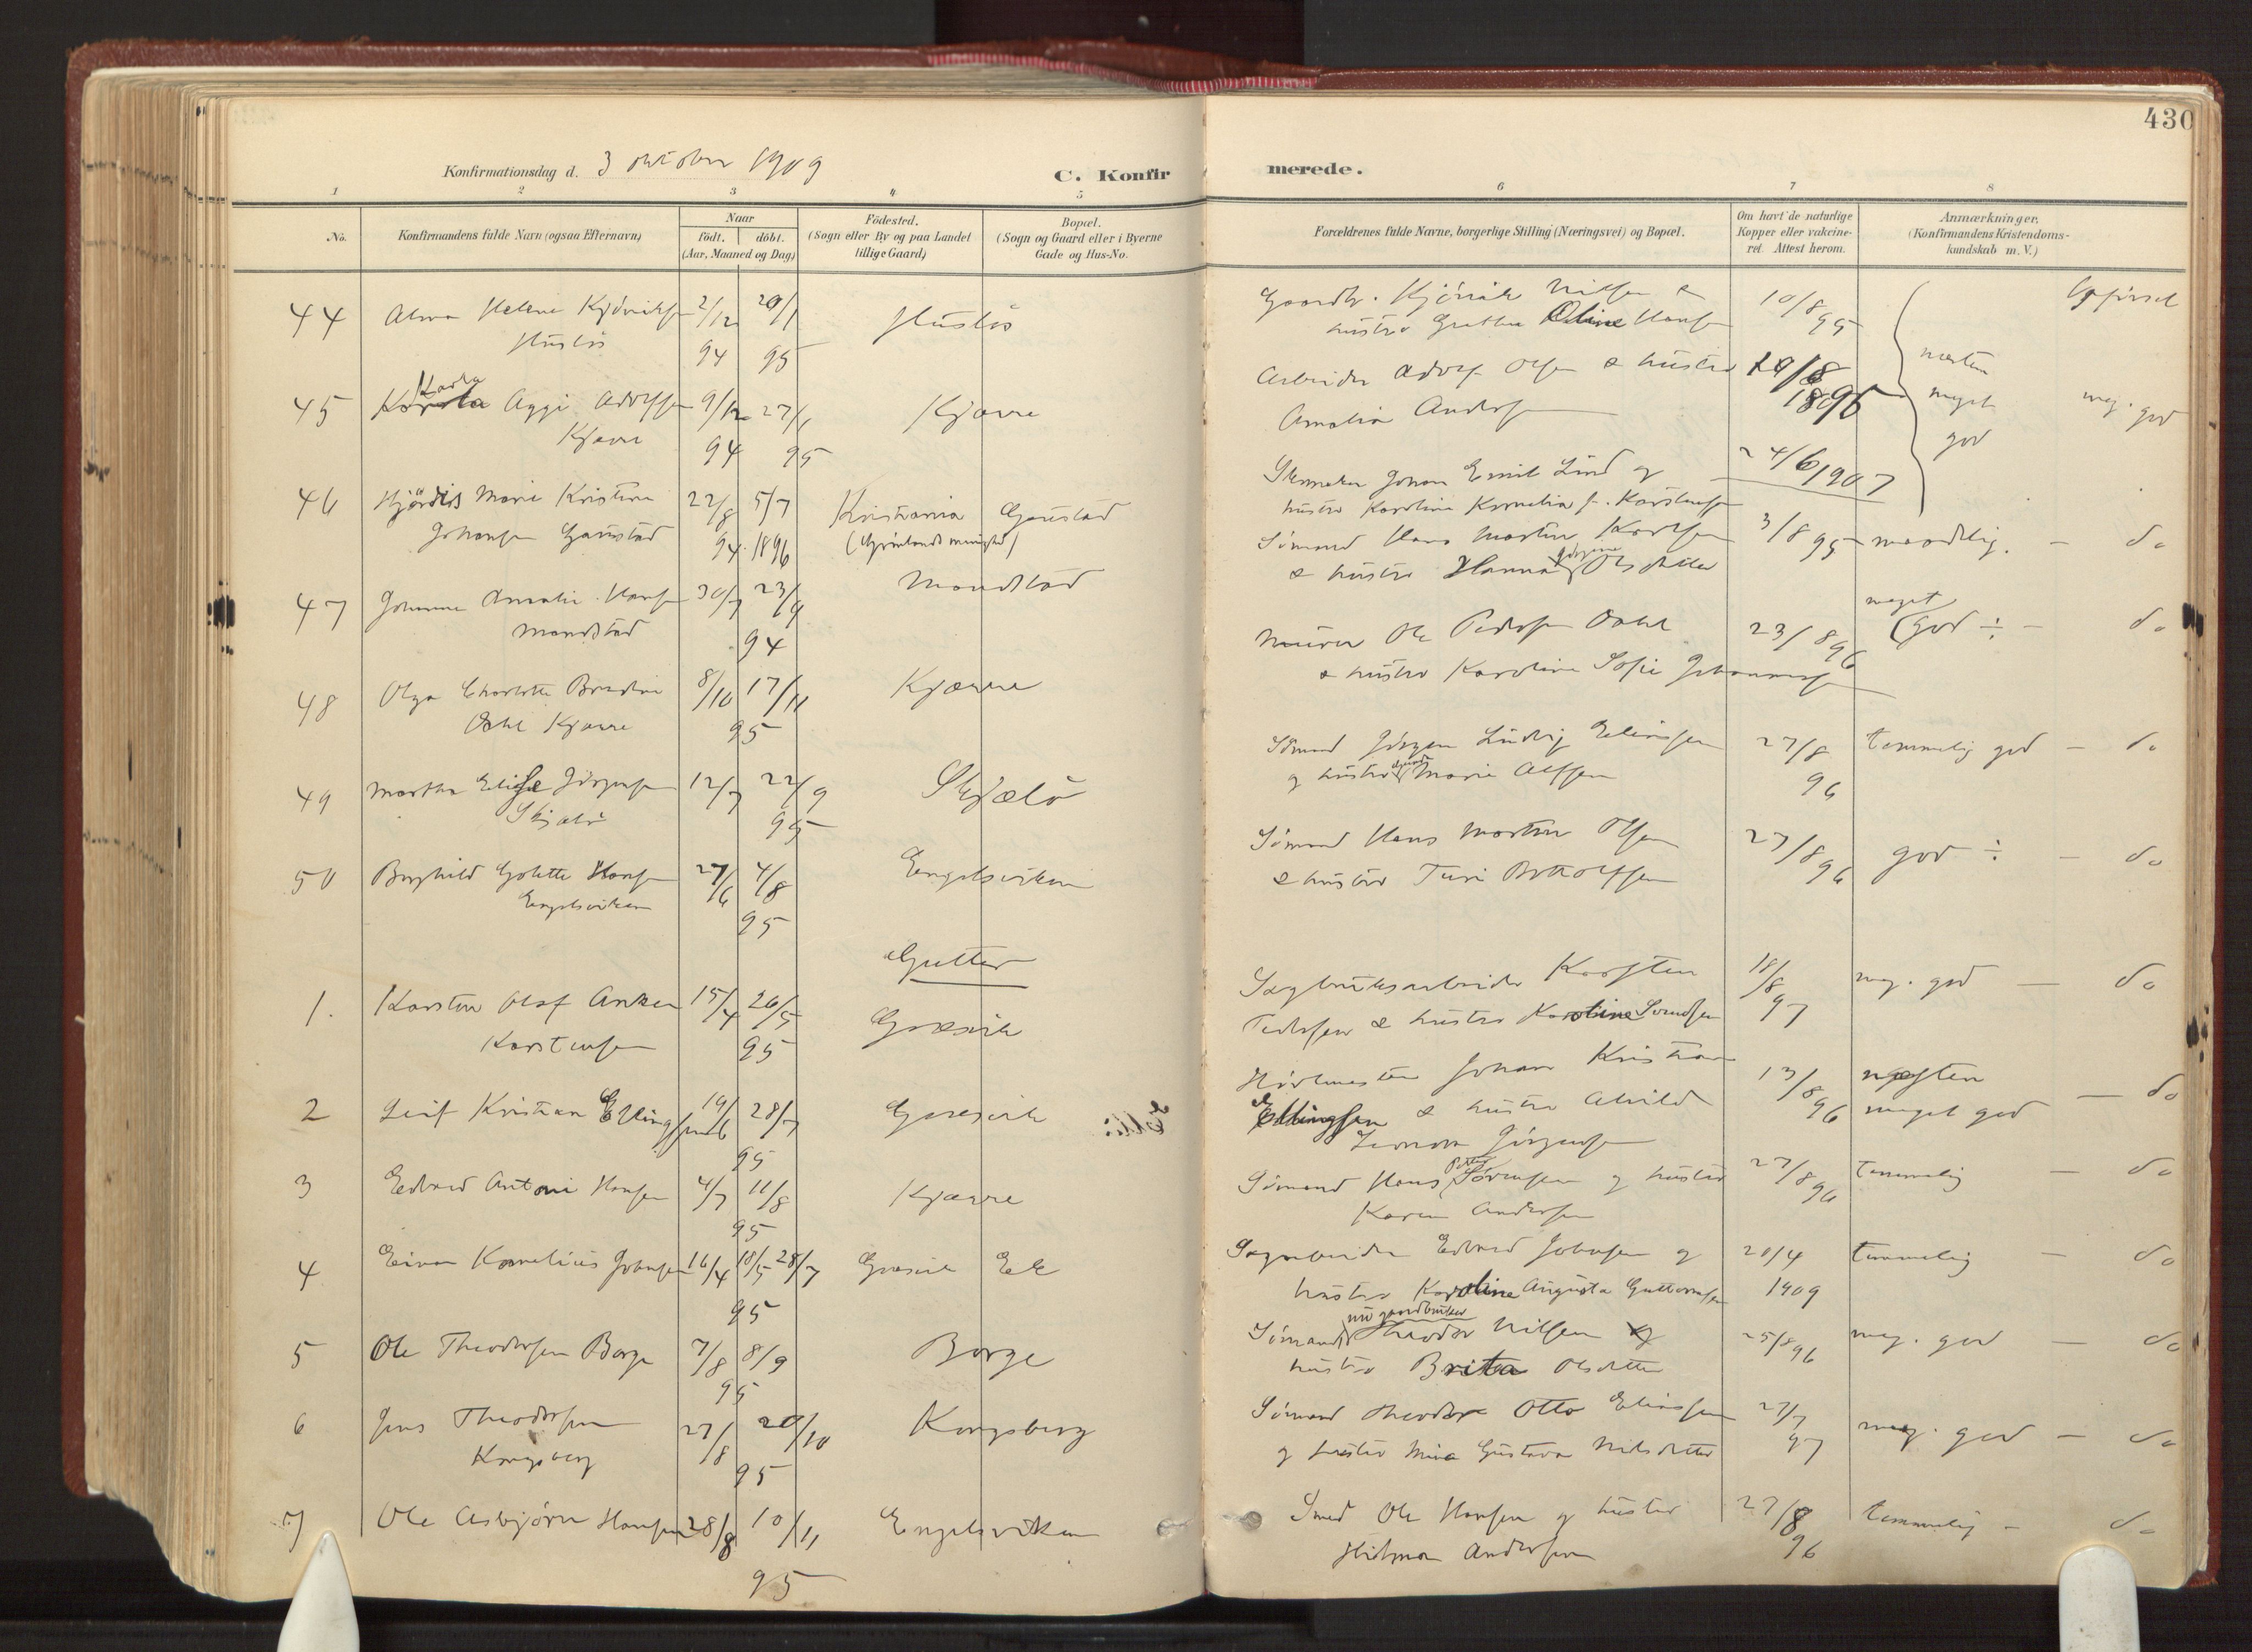 430
Konfirmationsdag d. 3 oktober 1909
C. Konfirmerede.
1 2 3 4 5 6 7 8
No.
Konfirmandens fulde Navn (ogsaa Efternavn)
Naar
födt. döbt.
(Aar, Maaned og Dag)
Födested.
(Sogn eller By og paa Landet
tillige Gaard)
Bopæl.
(Sogn og Gaard eller i Byerne
Gade og Hus-No.
Forældrenes fulde Navne, borgerlige Stilling (Næringsvei) og Bopæl.
Om havt de naturlige
Kopper eller vakcine-
ret Attest herom.
Anmærkninger.
(Konfirmandens Kristendoms-
kundskab m. V.)
44 Alma Helene 2/12 20/1 Huslös
Huslös 94 95
Gaardb. Nilsen &
hustru Grethe Oline Hansen
10/8 95
Opförsel
Karla
45 Aggi Adolfsen 9/12 27/1 Kjærre
94 95
Arbeider Adolf Olsen & hustru
Amalia Andersen
1896
næsten
meget
god
meg. god
46 Hjørdis Marie Kristine 22/8 5/7 Kristiania Gaustad
Johansen Gaustad 94 1896 (Grönlands menighed)
Skomaker Johan Emil Lind og
hustru Karoline Kornelia f. Karstensen
24/6 1907
47 Johanne Amalie Hansen 30/7 23/9
94
Sömand Hans Martin Karlsen
& hustru Hanna Olsdatter
3/8 95 maadelig. — do
48 Olga Charlotte 8/10 17/11 Kjærre
Dahl Kjærre 95
Murer Ole Pedersen Dahl
& hustru Karoline Sofie Johannesen
23/8 96
meget
(god ÷ — do
49 Martha Elise Jörgensen 12/7 22/9 Skjælö
Skjælö 95
Sömand Jörgen Ludvig Eliassen
og hustru Marie Alfsen
27/8 96
temmelig god — do
50 Borghild Golette Hansen 27/6 4/8 Engelsviken
Engelsviken 95
Sömand Hans Martin Olsen
& hustru Turi
27/8 96
god ÷ — do
Gutter
1. Karsten Olaf Anker 15/4 26/5 Gresvik
Karstensen 95
Sagbruksarbeider Karsten
Pedersen & hustru Karoline Svendsen
18/8 97
meg. god — do
2 Leif Kristian Ellingsen 19/6 28/7 Gresvik
95
Johan Kristian
Ellingsen & hustru Alvild
Leonora Jörgensen
13/8 96
næsten
meget god — do
3 Edvard Antoni Hansen 4/7 11/8 Kjærre
95
Sömand Hans Petter Sörensen og hustru
Karen Andersen
27/8 96
temmelig — do
4 Einar Kornelius Johnsen 16/4 18/5 28/7 Gresvik Ek
95
Sagarbeider Edvard Johnsen og
hustru Karoline Augusta Guttormsen
20/4
1909
temmelig — do
5 Ole Theodorsen Borge 7/8 8/9 Borge
95
nu gaardbruker
Sömand Theodor Nilsen og
hustru Brita Olsdatter
25/8 96
meg. god — do
6 Jens Theodorsen 27/8 20/10 Kongsberg
Kongsberg 95
Sömand Theodor Otto Eliassen
og hustru Mina Gustava Nilsdatter
27/7 97
meg. god — do
7 Ole Asbjörn Hansen 28/8 10/11 Engelsviken
95
Smed Ole Hansen og hustru
Hilma Andersen
27/8 96
temmelig — do